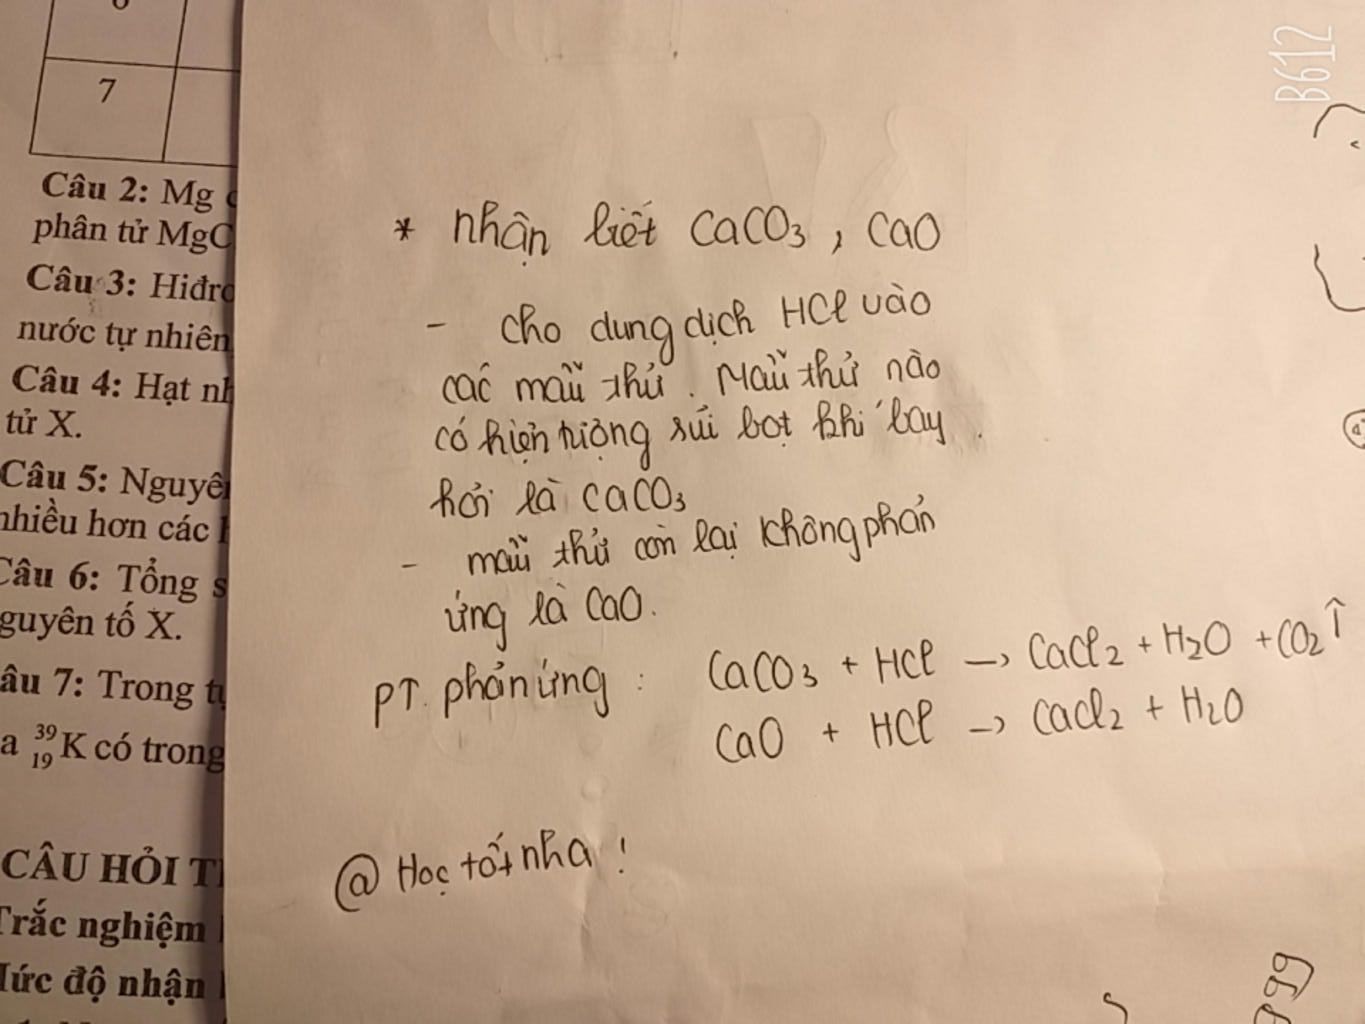 7
Câu 2: Mg
phân tử MgC
Câu 3: Hiđro
nước tự nhiên
Câu 4: Hạt nh
tử X.
Câu 5: Nguyê
nhiều hơn các
Câu 6: Tổng s
guyên tố X.
âu 7: Trong tự
a ³⁹₁₉K có trong
CÂU HỎI T
Trắc nghiệm
Mức độ nhận
B612
* nhận biết CaCO₃, CaO
- cho dung dịch HCl vào
các mẫu thử. Mẫu thử nào
có hiện tượng sủi bọt khí bay
hơi là CaCO₃
- mẫu thử còn lại không phản
ứng là CaO.
PT. phản ứng : CaCO₃ + HCl → CaCl₂ + H₂O + CO₂↑
CaO + HCl → CaCl₂ + H₂O
@ Học tốt nha !